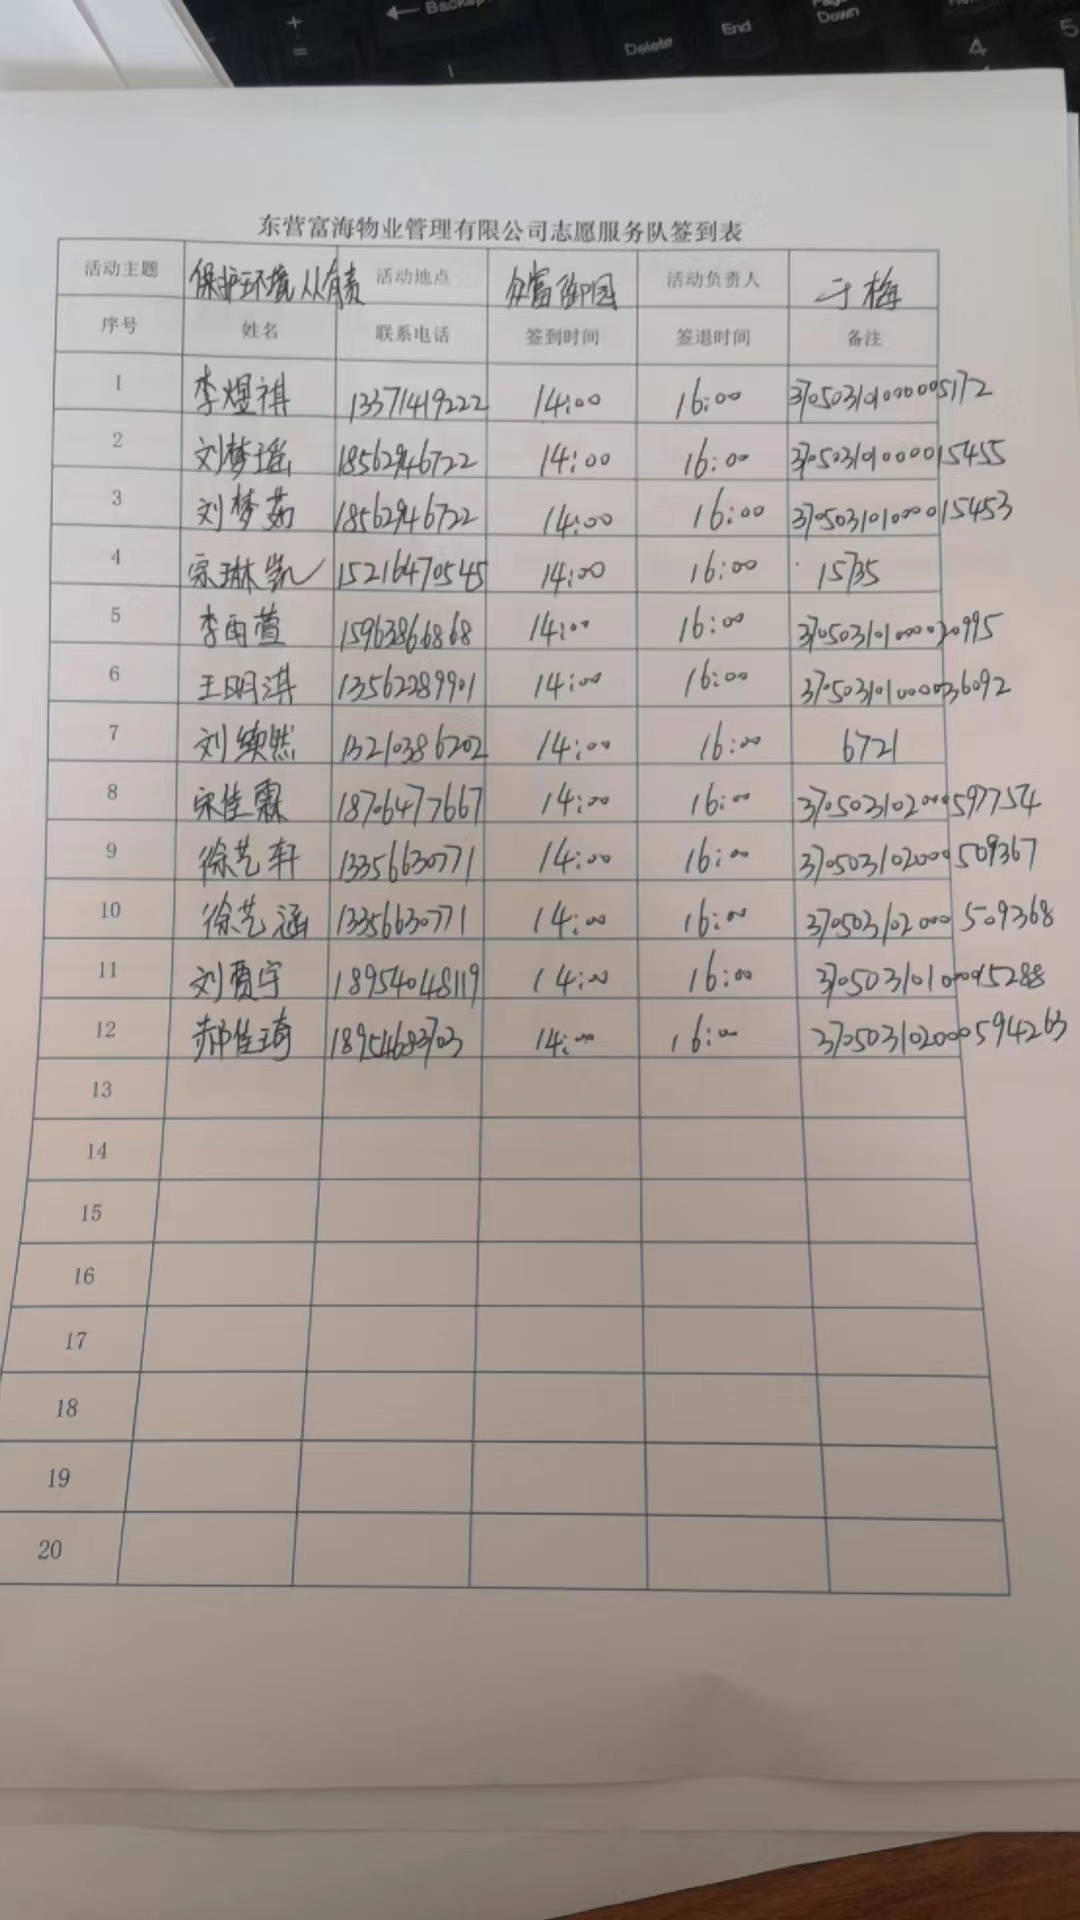 ← Backsp
+
=
Delete
End
Page
Down
4
5
东营富海物业管理有限公司志愿服务队签到表
活动主题 保护环境人人有责 活动地点 众富御园 活动负责人 于梅
序号 姓名 联系电话 签到时间 签退时间 备注
1 李煜祺 13371419222 14:00 16:00 3705031010000005172
2 刘梦瑶 18562946722 14:00 16:00 370503101000015455
3 刘梦茹 18562946722 14:00 16:00 370503101000015453
4 宗琳凯 15216470545 14:00 16:00 15735
5 李雨萱 15963866868 14:00 16:00 370503101000030995
6 王明淇 13562289901 14:00 16:00 370503101000036092
7 刘续然 13210386202 14:00 16:00 6721
8 宋佳霖 18706477667 14:00 16:00 370503102000597754
9 徐艺轩 13356630771 14:00 16:00 370503102000509367
10 徐艺涵 13356630771 14:00 16:00 370503102000509368
11 刘贾宇 18954048119 14:00 16:00 37050310100015288
12 郝佳琦 18954683703 14:00 16:00 370503102000594263
13
14
15
16
17
18
19
20